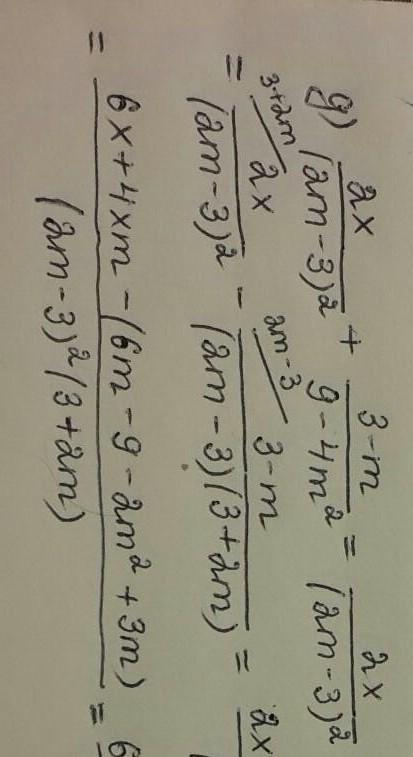 g) 2x/(2m-3)² + 3-m/9-4m² = 2x/(2m-3)²
= 3+2m/ 2x/(2m-3)² - 2m-3/ 3-m/(2m-3)(3+2m) = 2x
= 6x+4xm-(6m-9-2m²+3m)/(2m-3)²(3+2m) = 6